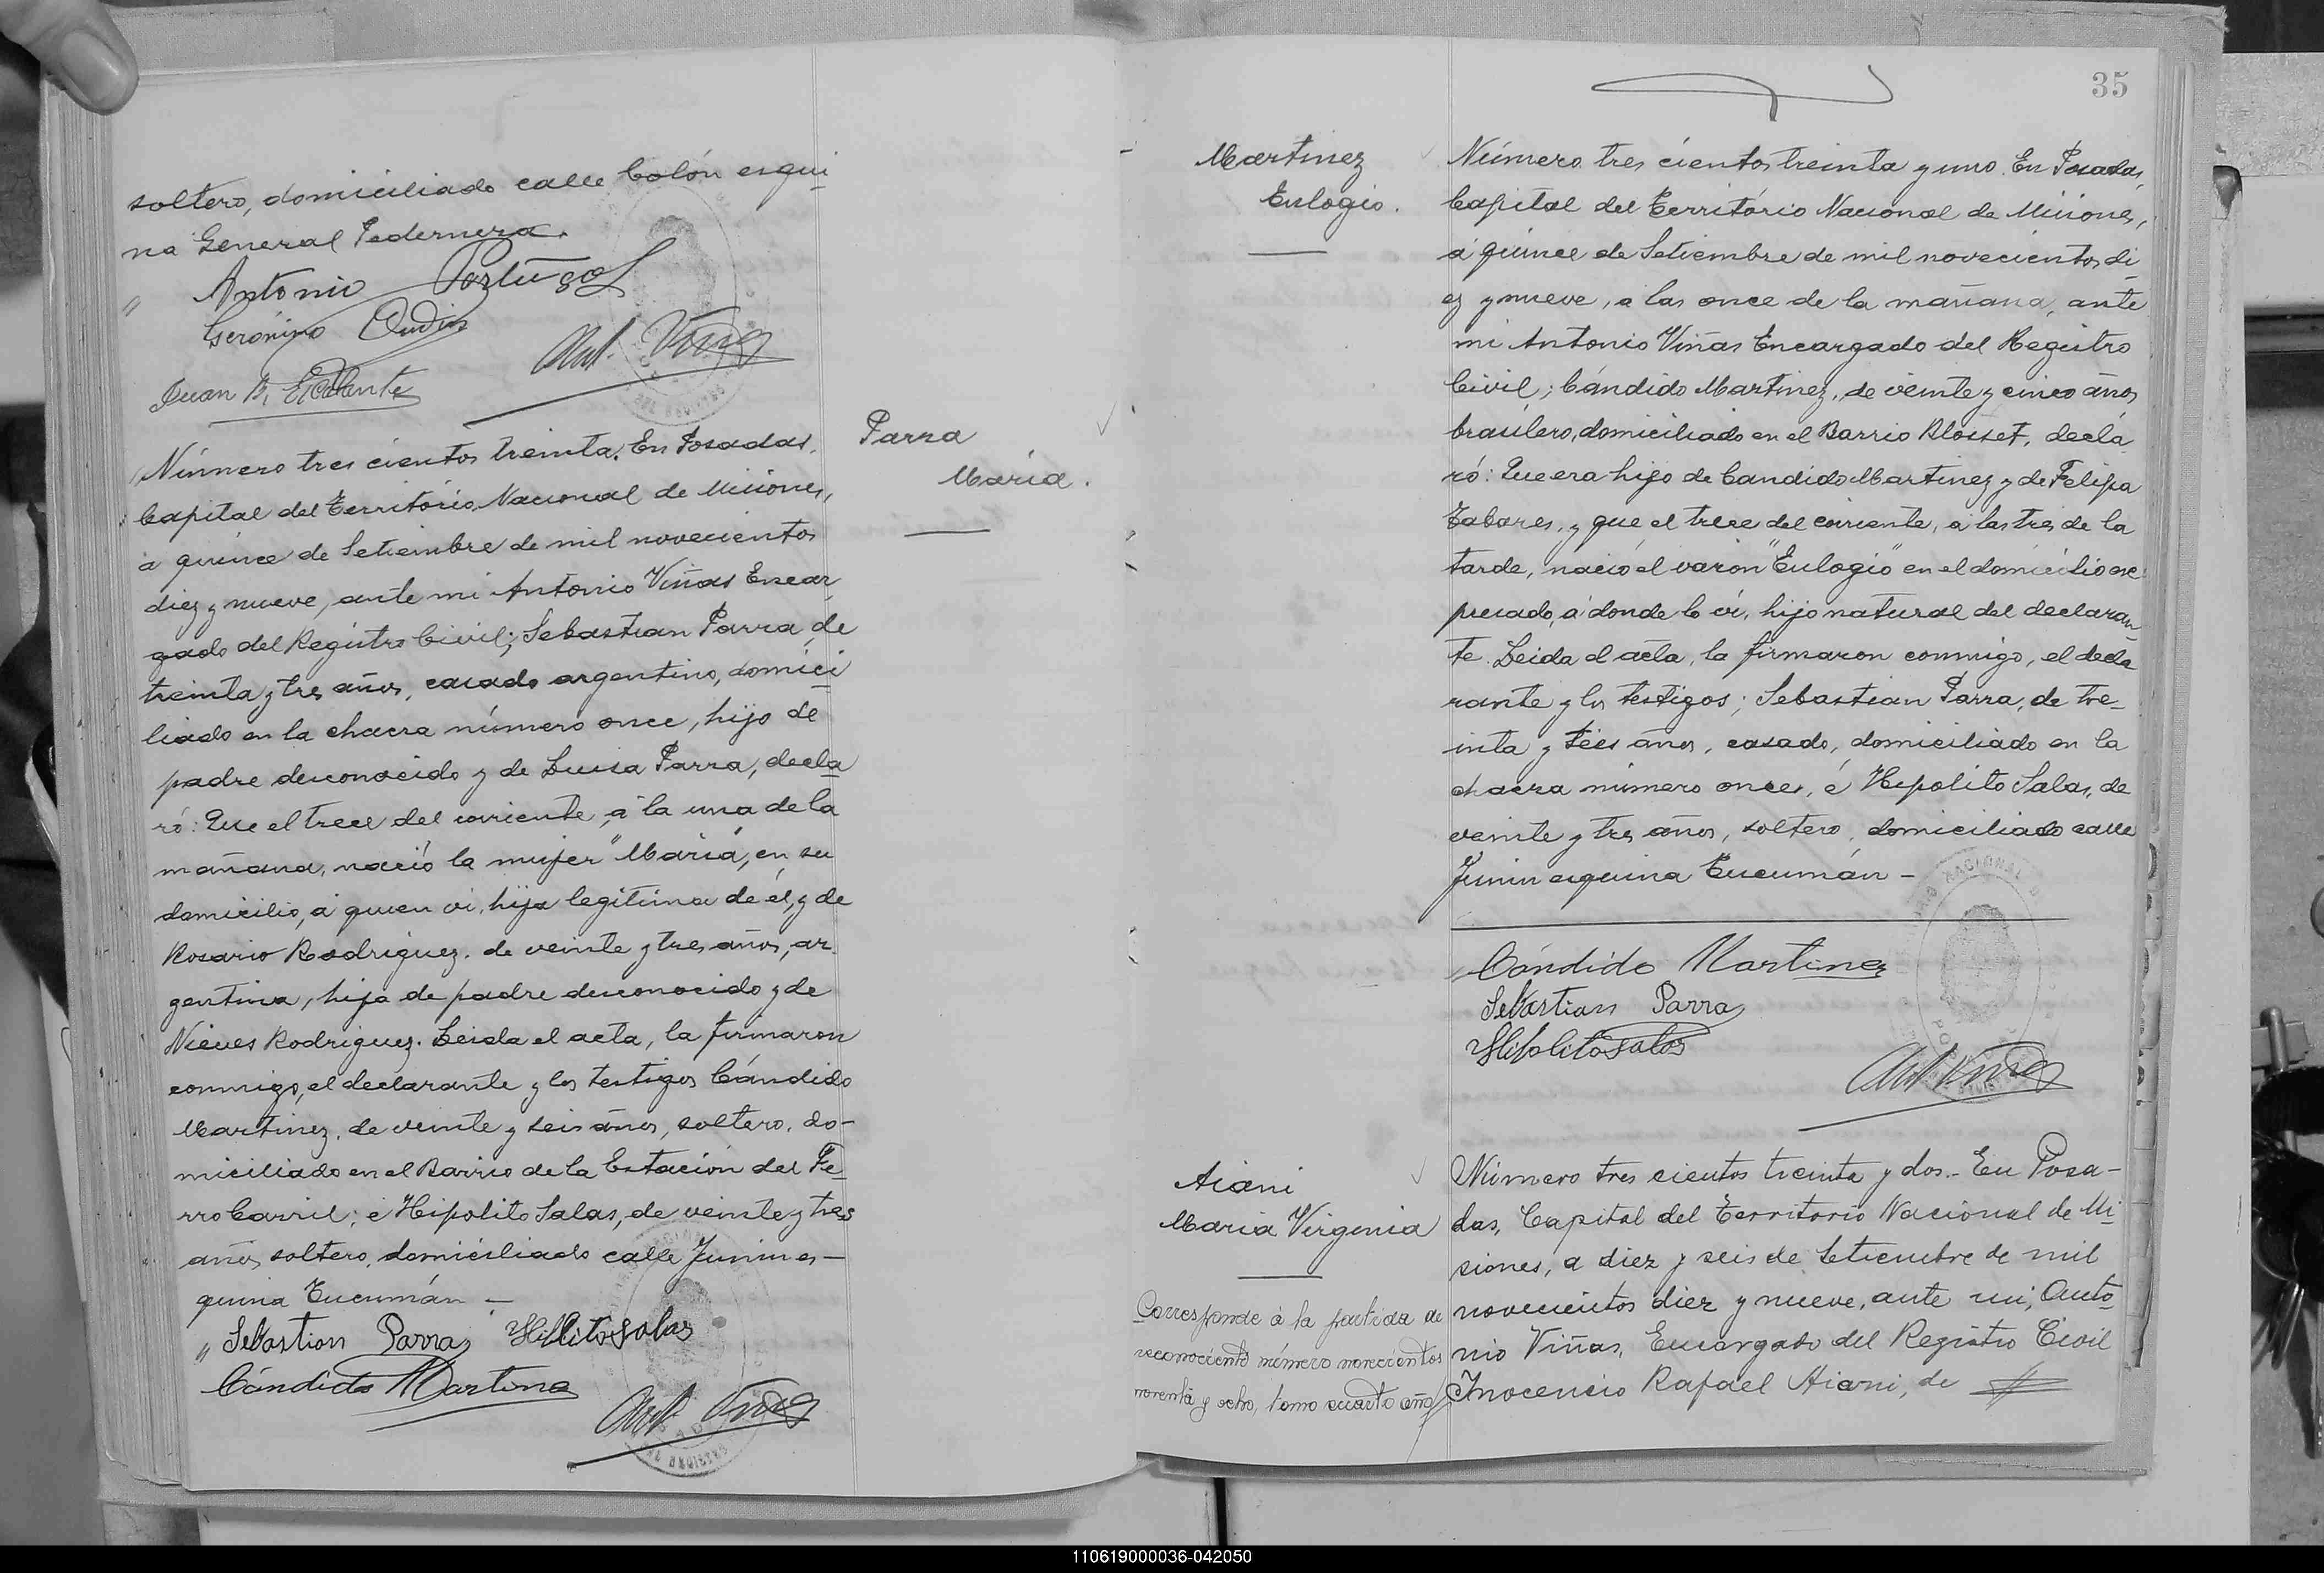 soltero, domiciliado calle Colón esqui
na General Pedernera.
" Antonio Portugal
Gerónimo
Ant. Viñas
Juan B. Escalante
Número tres cientos treinta. En Posadas,
Capital del Território Nacional de Misiones,
à quince de Setiembre de mil novecientos
diez y nueve, ante mi Antonio Viñas Encar
gado del Registro Civil; Sebastian Parra, de
treinta y tres años, casado argentino, domici
liado en la chacra número once, hijo de
padre desconocido y de Luisa Parra, decla
ró: Que el trece del corriente, à la una de la
mañana, nació la mujer "Maria", en su
domicilio, à quien vi, hija legitima de él, y de
Rosario Rodriguez, de veinte y tres años, ar
gentina, hija de padre desconocido y de
Nieves Rodriguez. Leida el acta, la firmaron
conmigo, el declarante y los testigos Cándido
Martinez, de veinte y seis años, soltero, do-
miciliado en el Barrio de la Estación del Fe
rro Carril; é Hipolito Salas, de veinte y tres
años, soltero, domiciliado calle Junin es-
quina Tucumán -
" Sebastian Parra Hipolito Salas
Cándido Martinez
Ant. Viñas
Parra
Maria.
35
Martinez
Eulogio.
Número tres cientos treinta y uno. En Posadas,
Capital del Território Nacional de Misiones,
à quince de Setiembre de mil novecientos di
ez y nueve, à las once de la mañana, ante
mi Antonio Viñas Encargado del Registro
Civil; Cándido Martinez, de veinte y cinco años
brasilero, domiciliado en el Barrio Blosset, decla
ró: Que era hijo de Candido Martinez y de Felipa
Tabares, y que el trece del corriente, à las tres de la
tarde, nació el varon "Eulogio" en el domicilio ex
presado, à donde lo vi, hijo natural del declaran
te. Leida el acta, la firmaron conmigo, el decla
rante y los testigos; Sebastian Parra, de tre-
inta y tres años, casado, domiciliado en la
chacra número once, é Hipolito Salas, de
veinte y tres años, soltero, domiciliado calle
Junin esquina Tucumán -
Cándido Martinez
Sebastian Parra
Hipolito Salas
Ant Viñas
Aiani
Maria Virginia
Corresponde à la partida de
reconociento número novecientos
noventa y ocho, tomo cuarto año
Número tres cientos treinta y dos.- En Posa-
das, Capital del Territorio Nacional de Mi
siones, a diez y seis de Setiembre de mil
novecientos diez y nueve, ante mi, Anto
nio Viñas, Encargado del Registro Civil
Inocencio Rafael Aiani, de
110619000036-042050